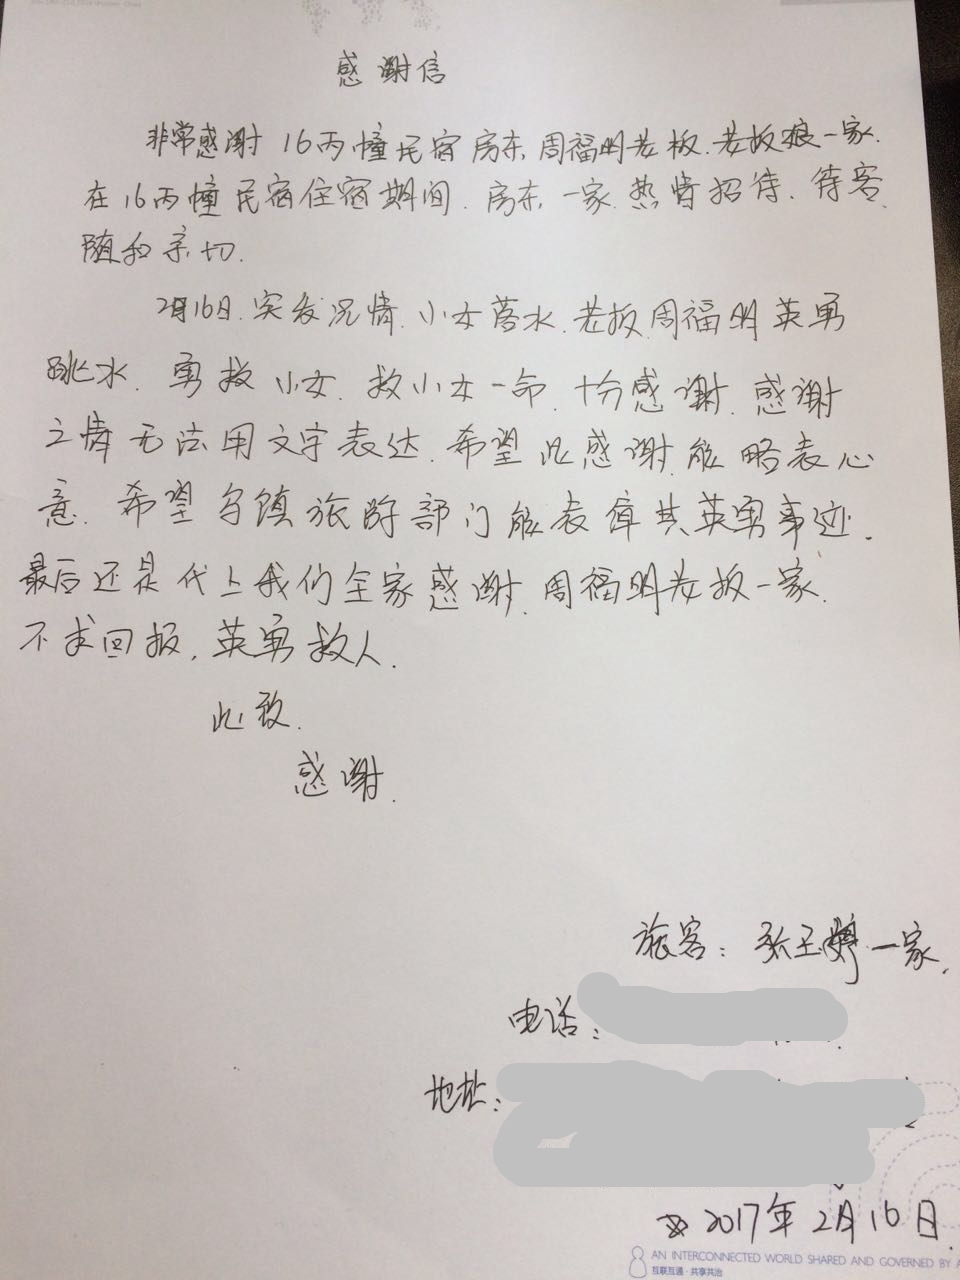 感谢信
非常感谢 16丙幢民宿房东周福明老板.老板娘一家.
在16丙幢民宿住宿期间.房东一家热情招待.待客
随和亲切.
2月16日.突发况情.小女落水.老板周福明英勇
跳水.勇救小女.救小女一命.十分感谢.感谢
之情无法用文字表达.希望此感谢能略表心
意.希望乌镇旅游部门能表障其英勇事迹.
最后还是代上我们全家感谢.周福明老板一家.
不求回报.英勇救人.
此致.
感谢.
旅客:张玉婷一家.
电话:
地址:
2017年2月16日.
AN INTERCONNECTED WORLD SHARED AND GOVERNED BY
互联互通·共享共治